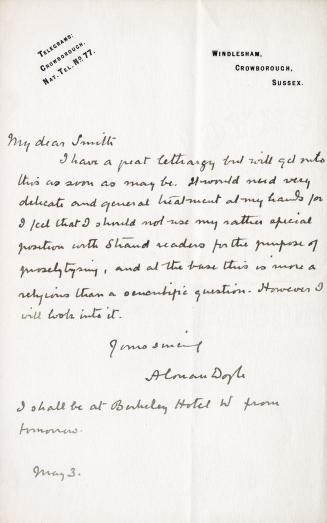 TELEGRAMS:
CROWBOROUGH.
NAT. TEL. NO. 77.
WINDLESHAM,
CROWBOROUGH,
SUSSEX.
My dear Smith
I have a great lethargy but will get into
this as soon as may be. It would need very
delicate and general treatment at my hands for
I feel that I should not use my rather special
position with Strand readers for the purpose of
proselytysing, and at the base this is more a
religious than a scientific question. However I
will look into it.
Yours sincerely
A Conan Doyle
I shall be at Berkeley Hotel W from
tomorrow.
May 3.